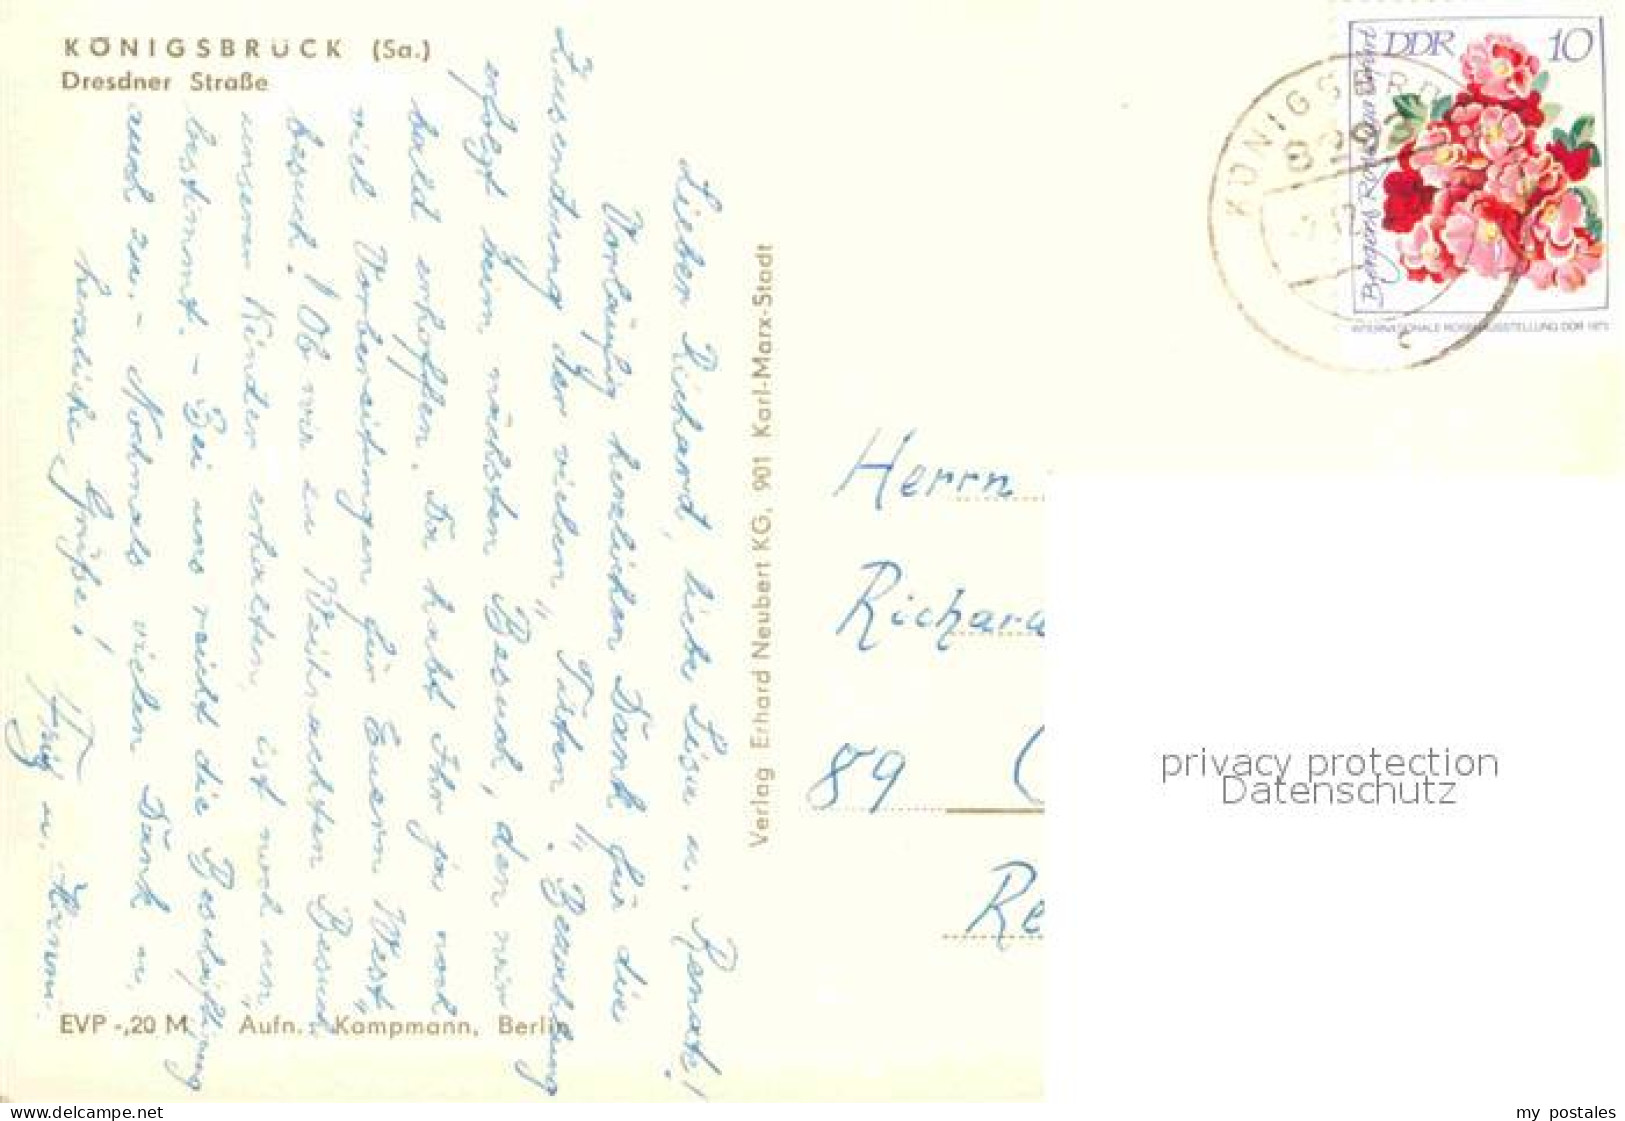 KÖNIGSBRÜCK (Sa.)
Dresdner Straße
Lieber Richard, liebe Lisa u. Renate!
Vorläufig herzlichen Dank für die
Zusendung der vielen "Tüten". Bezahlung
erfolgt beim nächsten Besuch, den wir
bald erhoffen. Da habt Ihr ja noch
viel Vorbereitungen für Euern "West"
besuch! Ob wir zu Weihnachten Besuch
unserer Kinder erhalten, ist noch un-
bestimmt. - Bei uns reißt die Beschäftigung
auch zu. - Nochmals vielen Dank u.
herzliche Grüße!
u.
EVP -,20 M Aufn.: Kampmann, Berlin
Verlag Erhard Neubert KG, 901 Karl-Marx-Stadt
DDR 10
INTERNATIONALE ROSENAUSSTELLUNG DDR 1972
KÖNIGSBRÜ
c
Herrn
Richard
89
Re
privacy protection
Datenschutz
www.delcampe.net
my_postales